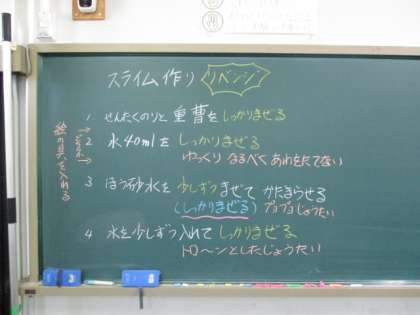 スライム作り リベンジ
1 せんたくのりと 重曹を しっかりまぜる
2 水40mlを しっかりまぜる
ゆっくり なるべく あわをたてない
3 ほう砂水を 少しずつ まぜて かたまらせる
(しっかりまぜる) プヨプヨじょうたい
4 水を少しずつ入れて しっかりまぜる
トローンとしたじょうたい
絵の具を入れる